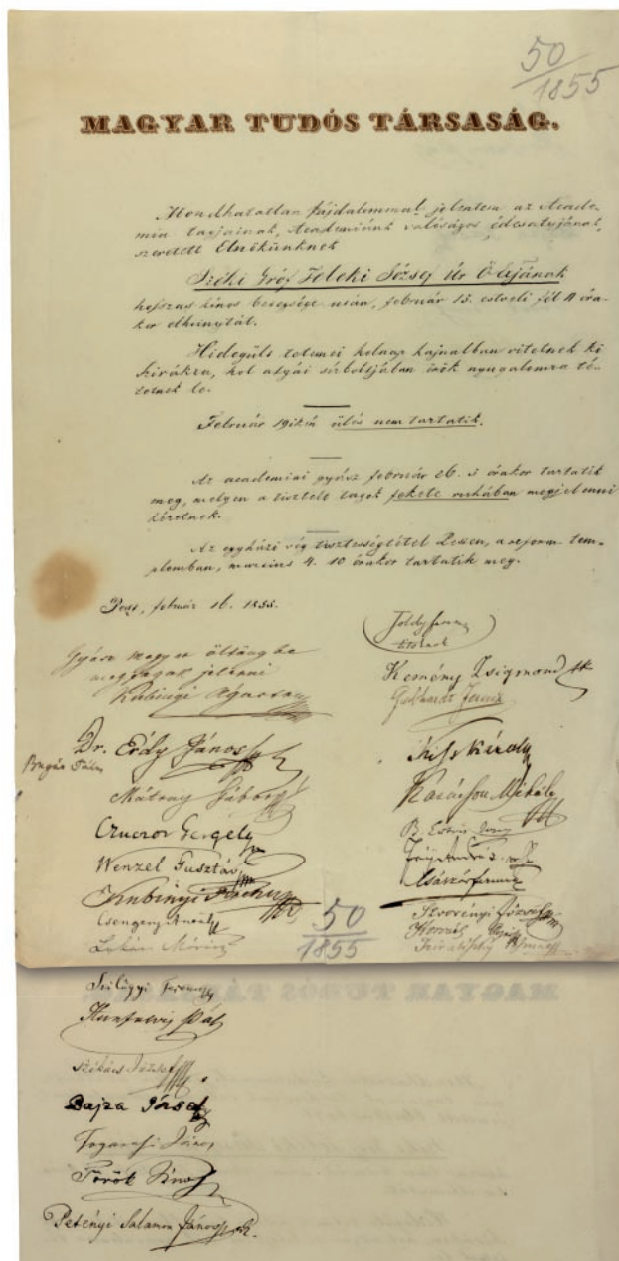 50
1855
MAGYAR TUDÓS TÁRSASÁG.
Mondhatatlan fájdalommal jelentem az Acade-
mia tagjainak, Academiánk valóságos édesatyjának,
szeretett Elnökünknek
Széki Gróf Teleki József Úr Ő Excjának
hosszas kínos betegsége után, február 15. estveli fél 11 óra-
kor elhunytát.
Hidegült tetemei holnap hajnalban vitetnek ki
Szirákra, hol atyái sírboltjában örök nyugalomra té-
tetnek le.
Február 19ikén ülés nem tartatik.
Az academiai gyász február 26. 5 órakor tartatik
meg, melyen a tisztelt tagok fekete ruhában megjelenni
kéretnek.
Az egyházi vég tisztességtétel Pesten, a reform. tem-
plomban, martius 4. 10 órakor tartatik meg.
Pest, február 16. 1855.
Toldy Ferenc
titoknok
Gyász magyar öltönybe
meg fogok jelenni
Kubinyi Ágoston
Kemény Zsigmond
Dr. Érdy János
Bugát Pál
Mátray Gábor
Czuczor Gergely
Wenzel Gusztáv
Kubinyi Ferenc
Csengery Antal
Lukács Móricz
Kiss Károly
Karácson Mihály
B. Eötvös
Fáy András
Császár Ferenc
Szvorényi József
50
1855
Szilágyi Ferenc
Hunfalvy Pál
Székács József
Bajza József
Fogarasi János
Török János
Petényi Salamon János